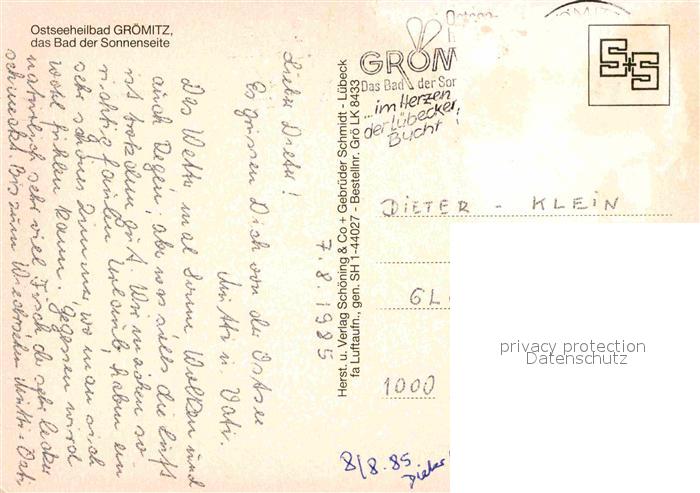 Ostseeheilbad GRÖMITZ,
das Bad der Sonnenseite
7.8.1985
Lieber Dieter!
Es grüssen Dich von der Ostsee
Mutti u. Vati.
Das Wetter mal Sonne Wolken und
auch Regen, aber was solls die Luft
ist trotzdem gut. Wir machen so
richtig faulen Urlaub, haben ein
sehr schönes Zimmer, wo man sich
wohl fühlen kann. Gegessen wird
natürlich sehr viel Fisch der sehr lecker
schmeckt. Bis zum Wiedersehen Mutti + Vati
Herst. u. Verlag Schöning & Co + Gebrüder Schmidt - Lübeck
fa Luftaufn., gen. SH 1-44027 - Bestellnr. Grö LK 8433
Ostsee-
GRÖM
Das Bad der Son
...im Herzen
der Lübecker
Bucht
S+S
DIETER - KLEIN
GL
1000
8/8.85
Dieter
privacy protection
Datenschutz